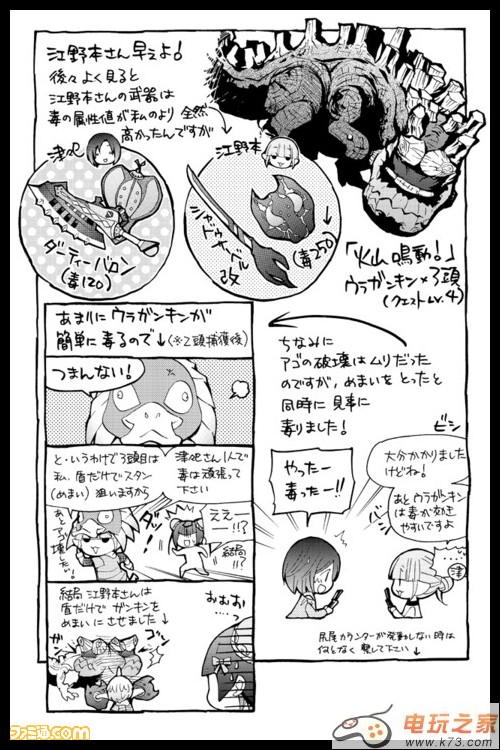 江野本さん早えよ!
後々よく見ると
江野本さんの武器は
毒の属性値が私のより全然
高かったんですが
江野本
ダーティーバロン
(毒120)
シャドウサーベル
改
(毒250)
「火山鳴動!」
ウラガンキン×3頭
(クエストLv.4)
ちなみに
アゴの破壊はムリだった
のですが、めまいをとったと
同時に見事に
毒りました!
ビン
やったー
毒ったー!!
大分かかりました
けどね!
あとウラガンキン
は毒が効き
やすいですよ
尻尾カウンターが発動しない時は
何となく察して下さい↓
あまりにウラガンキンが
簡単に毒るので↓(※2頭捕獲後)
つまんない!
と・いうわけで3頭目は
私、盾だけでスタン
(めまい)狙いますから
あとアゴ壊したい!
毒は頑張って
下さい
ダッ
ええー
ー!!?
結局!?
結局江野本さんは
盾だけでガンキンを
めまいにさせました↓
ガン
ゴン
おおお
っ…
ファミ通.com
电玩之家
www.k73.com